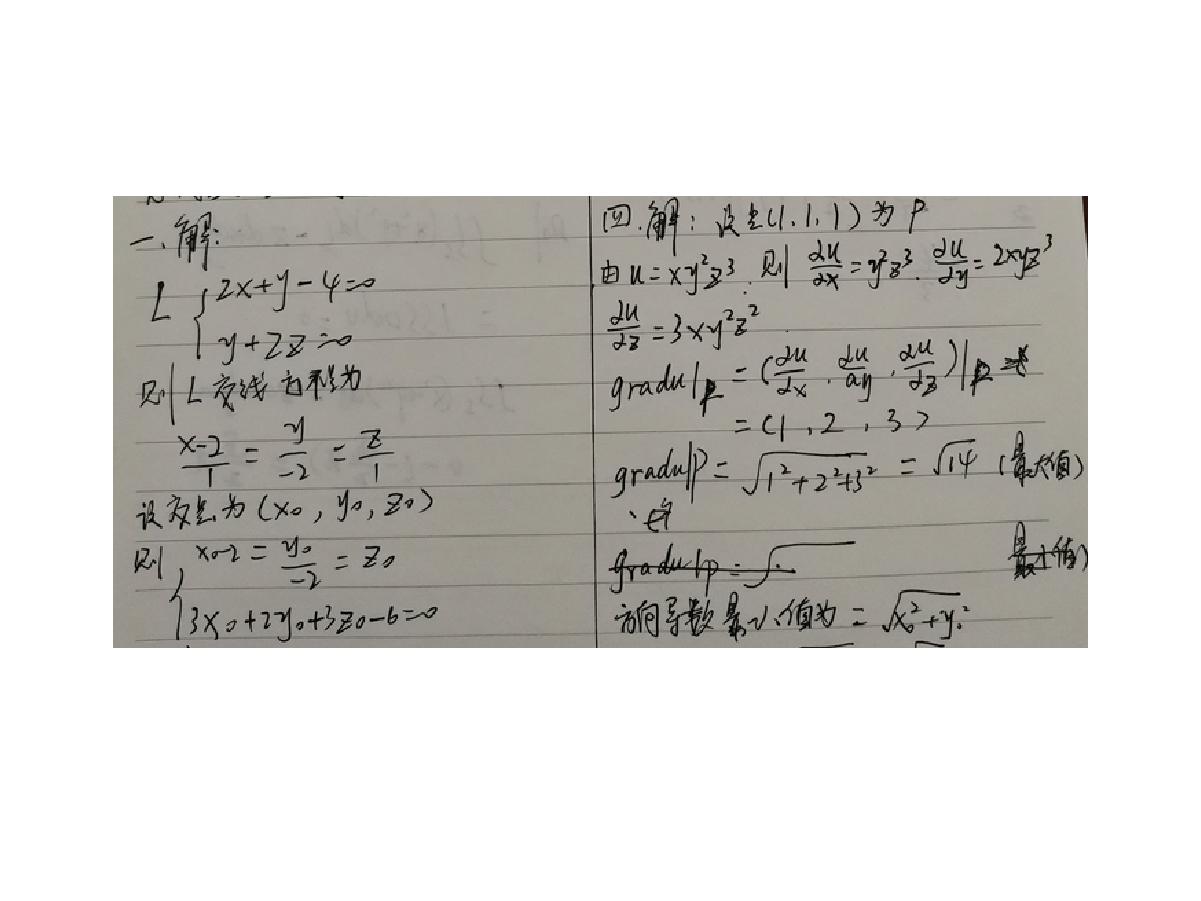 一.解:
L { 2x+y-4=0
y+2z=0
则 L 交线方程为
\frac{x-2}{1} = \frac{y}{-2} = \frac{z}{1}
设交点为 (x₀, y₀, z₀)
则 { x₀-2 = \frac{y₀}{-2} = z₀
3x₀+2y₀+3z₀-6=0
四.解: 设点(1.1.1) 为 P
由 u = xy²z³. 则 \frac{∂u}{∂x} = y²z³. \frac{∂u}{∂y} = 2xyz³
\frac{∂u}{∂z} = 3xy²z²
gradu|p = (\frac{∂u}{∂x}, \frac{∂u}{∂y}, \frac{∂u}{∂z})|p
= (1, 2, 3)
gradu|p = √(1²+2²+3²) = √14 (最大值)
gradu|p = √
方向导数最小值为 = √(x₀²+y₀²